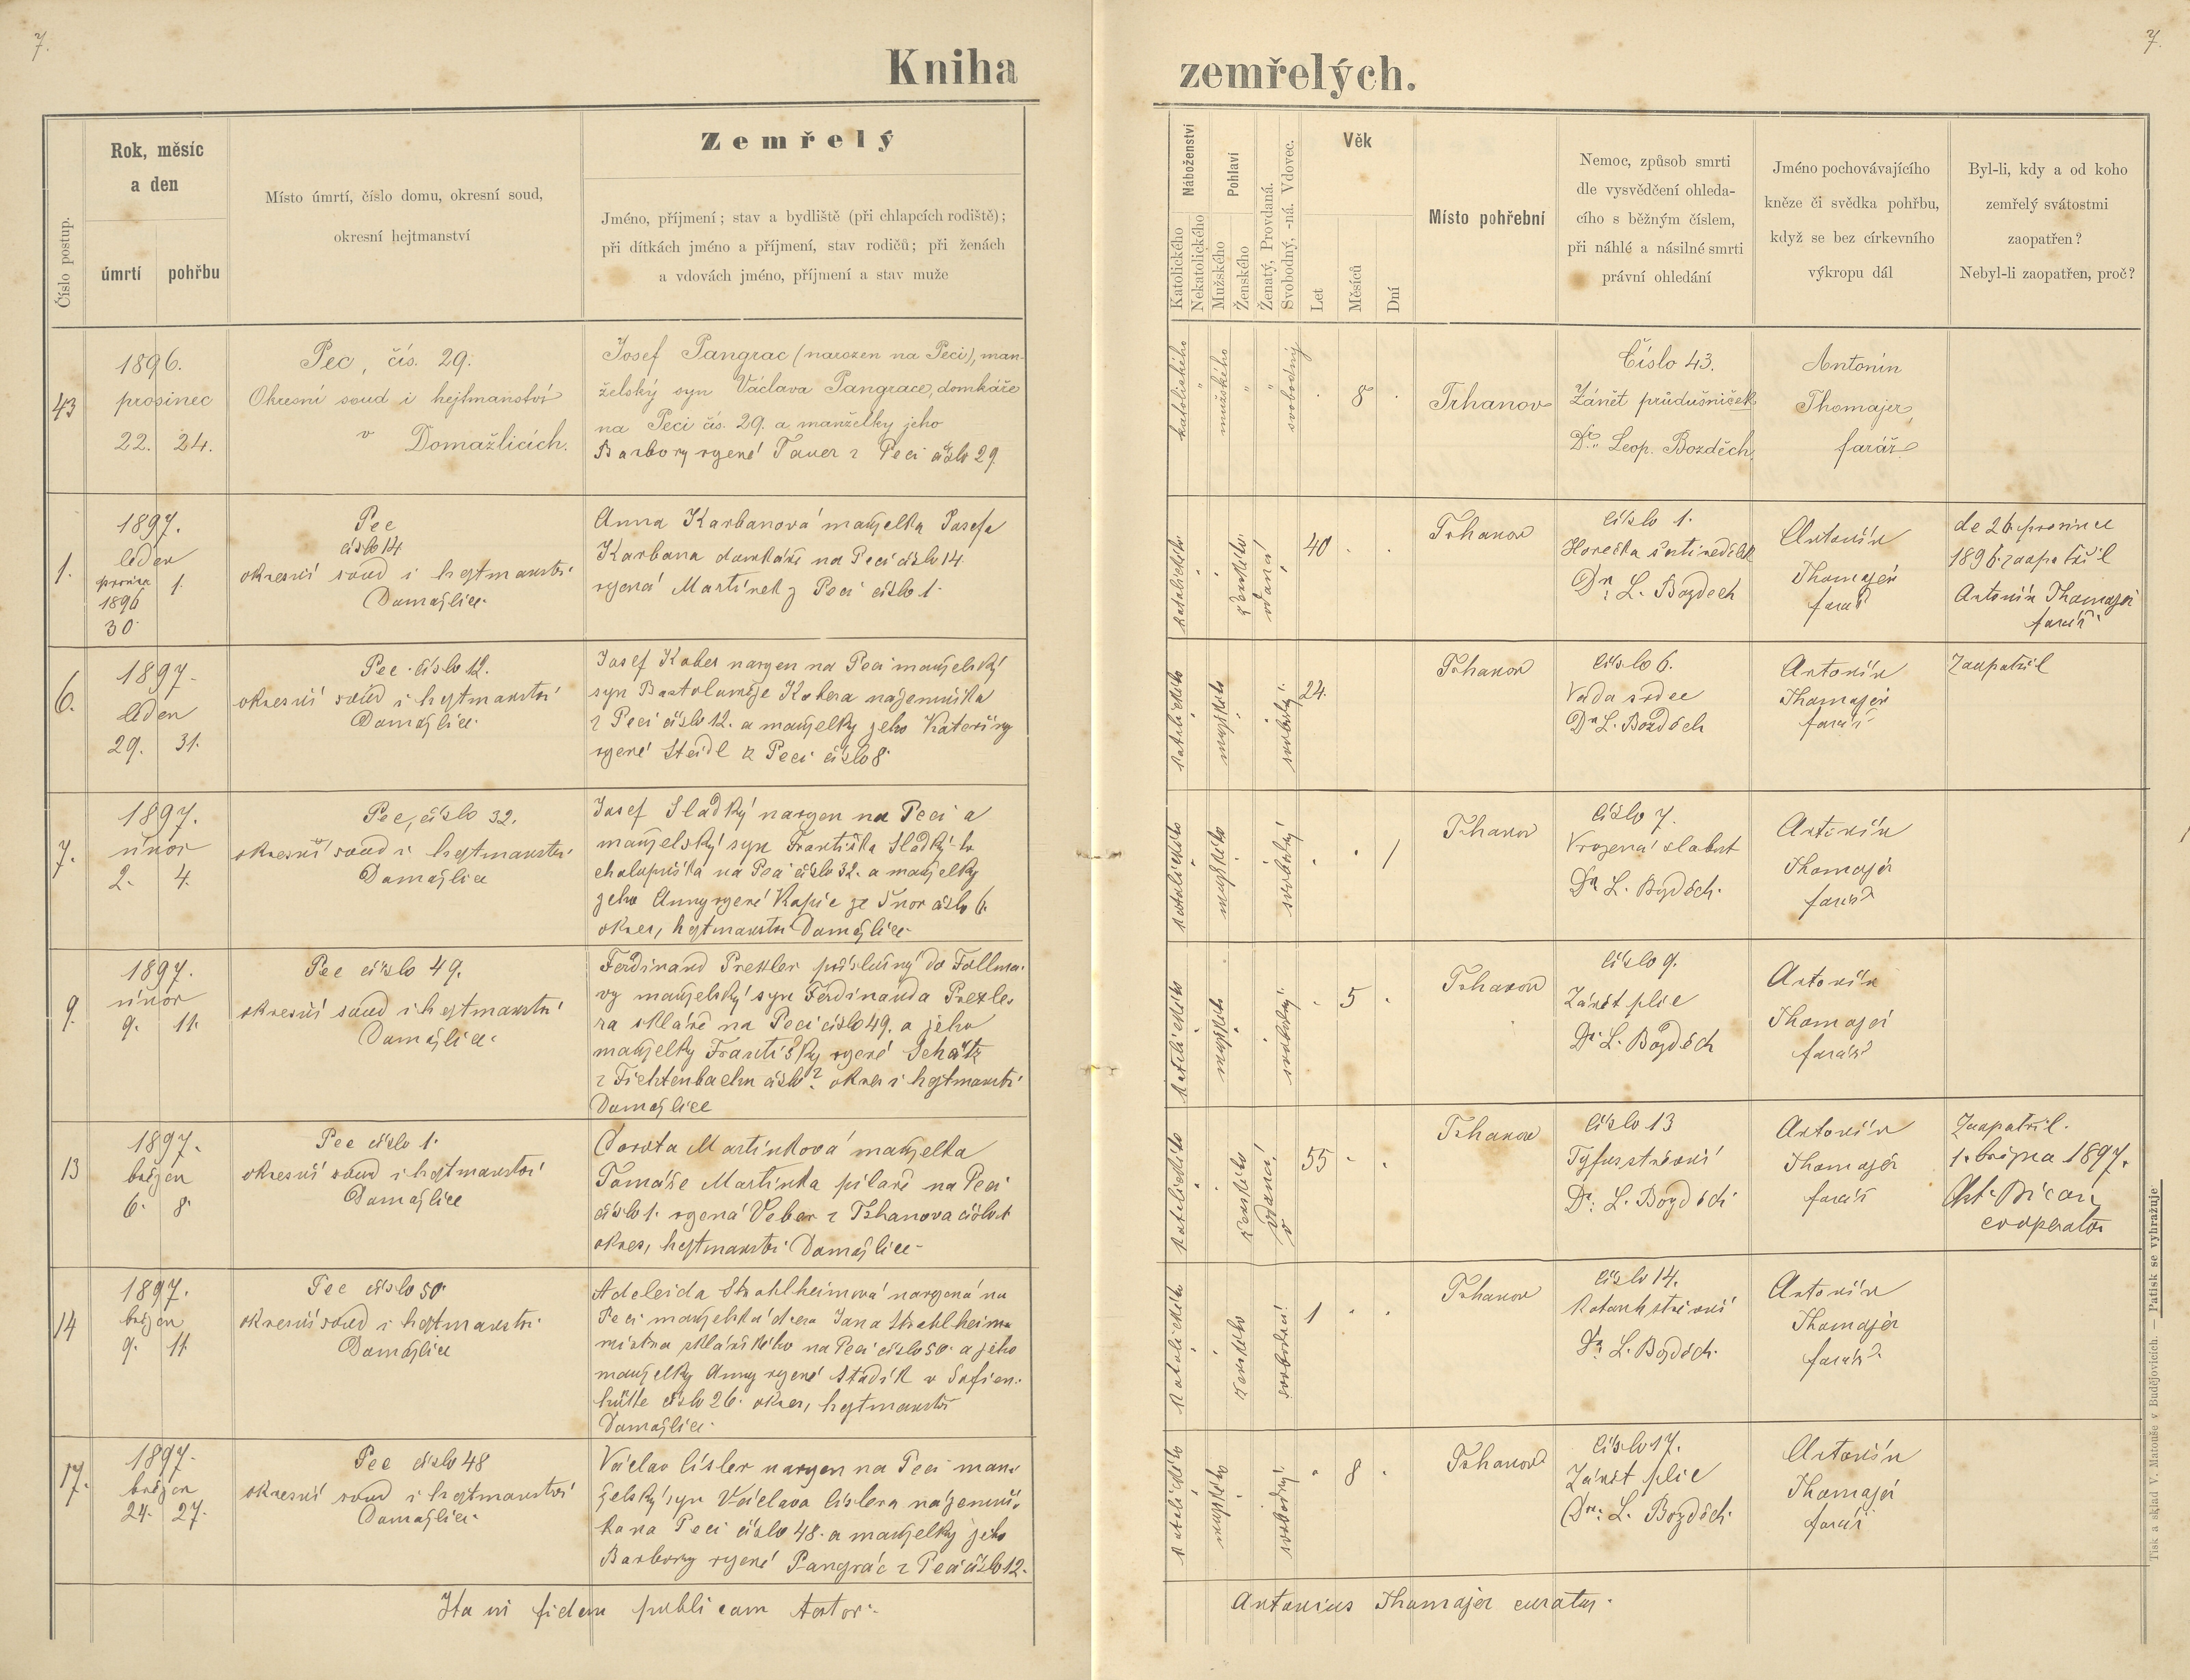 7.
7.
Kniha zemřelých.
Číslo postup.
Rok, měsíc
a den
úmrtí
pohřbu
Místo úmrtí, číslo domu, okresní soud,
okresní hejtmanství
Zemřelý
Jméno, příjmení; stav a bydliště (při chlapcích rodiště);
při dítkách jméno a příjmení, stav rodičů; při ženách
a vdovách jméno, příjmení a stav muže
Náboženství
Katolického
Nekatolického
Pohlaví
Mužského
Ženského
Ženatý, Provdaná.
Svobodný, -ná. Vdovec.
Věk
Let
Měsíců
Dní
Místo pohřební
Nemoc, způsob smrti
dle vysvědčení ohleda-
cího s běžným číslem,
při náhlé a násilné smrti
právní ohledání
Jméno pochovávajícího
kněze či svědka pohřbu,
když se bez církevního
výkropu dál
Byl-li, kdy a od koho
zemřelý svátostmi
zaopatřen?
Nebyl-li zaopatřen, proč?
43
1896.
prosinec
22. 24.
Pec, čís. 29.
Okresní soud i hejtmanství
v Domažlicích.
Josef Pangrac (narozen na Peci), man-
želský syn Václava Pangrace, domkáře
na Peci čís. 29. a manželky jeho
Barbory rozené Tauer z Peci číslo 29.
katolického
mužského
svobodný
8
Trhanov
Číslo 43.
Zánět průdušniček
Dr. Leop. Bozděch.
Antonín
Thomajer,
farář
1.
1897.
leden
prosince
1896
30.
1.
Pec
číslo 14
okresní soud i hejtmanství
Domažlice.
Anna Karbanová manželka Josefa
Karbana domkáře na Peci číslo 14.
rozená Martínek z Peci číslo 1.
katolického
ženského
vdaná
40
Trhanov
číslo 1.
Horečka šestinedělek
Dr. L. Bozděch
Antonín
Thomajer
farář
de 26. prosince
1896 zaopatřil
Antonín Thomajer
farář
6.
1897.
leden
29. 31.
Pec číslo 12.
okresní soud i hejtmanství
Domažlice.
Josef Kober narozen na Peci manželský
syn Bartoloměje Kobera nájemníka
z Peci číslo 12. a manželky jeho Kateřiny
rozené Steidl z Peci číslo 8.
katolického
mužského
svobodný
22.
Trhanov
číslo 6.
Vada srdce
Dr. L. Bozděch
Antonín
Thomajer
farář
Zaopatřil
7.
1897.
únor
2. 4.
Pec, číslo 32.
okresní soud i hejtmanství
Domažlice
Josef Sladký narozen na Peci a
manželský syn Františka Sladkýho
chalupníka na Peci číslo 32. a manželky
jeho Anny rozené Kapic ze Únor číslo 6.
okres, hejtmanství Domažlice.
katolického
mužského
svobodný
1
Trhanov
číslo 7.
Vrozená slabost
Dr. L. Bozděch.
Antonín
Thomajer
farář
9.
1897.
únor
9. 11.
Pec číslo 49.
okresní soud i hejtmanství
Domažlice.
Ferdinand Prexler příslušný do Follma-
vy manželský syn Ferdinanda Prexle-
ra skláře na Peci číslo 49. a jeho
manželky Františky rozené Schätz
z Fichtenbachu číslo ? okres i hejtmanství
Domažlice
katolického
mužského
svobodný
5
Trhanov
číslo 9.
Zánět plic
Dr. L. Bozděch
Antonín
Thomajer
farář
13
1897.
březen
6. 8.
Pec číslo 1.
okresní soud i hejtmanství
Domažlice
Dorota Martínková manželka
Tomáše Martínka pilaře na Peci
číslo 1. rozená Veber z Trhanova číslo 1
okres, hejtmanství Domažlice.
katolického
ženského
vdaná
55
Trhanov
číslo 13
Tyfus střevní
Dr. L. Bozděch
Antonín
Thomajer
farář
Zaopatřil.
1. března 1897.
cooperator
14
1897.
březen
9. 11.
Pec číslo 50.
okresní soud i hejtmanství
Domažlice
Adeleida Strahlheimová narozená na
Peci manželská dcera Jana Strahlheima
mistra sklářského na Peci číslo 50. a jeho
manželky Anny rozené Stadik v Sofien-
hütte číslo 26. okres, hejtmanství
Domažlice.
katolického
ženského
svobodná
1
Trhanov
číslo 14.
Katarrh střevní
Dr. L. Bozděch.
Antonín
Thomajer
farář
17.
1897.
březen
24. 27.
Pec číslo 48
okresní soud i hejtmanství
Domažlice.
Václav Císler narozen na Peci man-
želský syn Václava Císlera nájemní-
ka na Peci číslo 48. a manželky jeho
Barbory rozené Pangrác z Peci číslo 12.
katolického
mužského
svobodný
8
Trhanov
číslo 17.
Zánět plic
Dr. L. Bozděch.
Antonín
Thomajer
farář
Ita in fidem publicam testor.
Antonius Thomajer curatus.
Tisk a sklad V. Matouše v Budějovicích. — Patisk se vyhražuje.